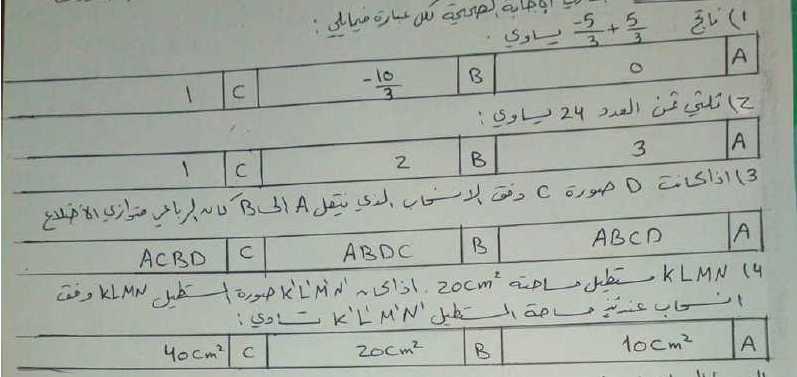 الإجابة الصحيحة لكل عبارة فيما يلي :
1) ناتج -5/3 + 5/3 يساوي :
A 0 B -10/3 C 1
2) ثلثي ثمن العدد 24 يساوي :
A 3 B 2 C 1
3) اذا كانت D صورة C وفق الانسحاب الذي ينقل A الى B كان الرباعي متوازي الأضلاع
A ABCD B ABDC C ACBD
4) KLMN مستطيل مساحته 20cm² . اذا كان K'L'M'N' صورة المستطيل KLMN وفق
انسحاب عندئذ مساحة المستطيل K'L'M'N' تساوي :
A 10cm² B 20cm² C 40cm²